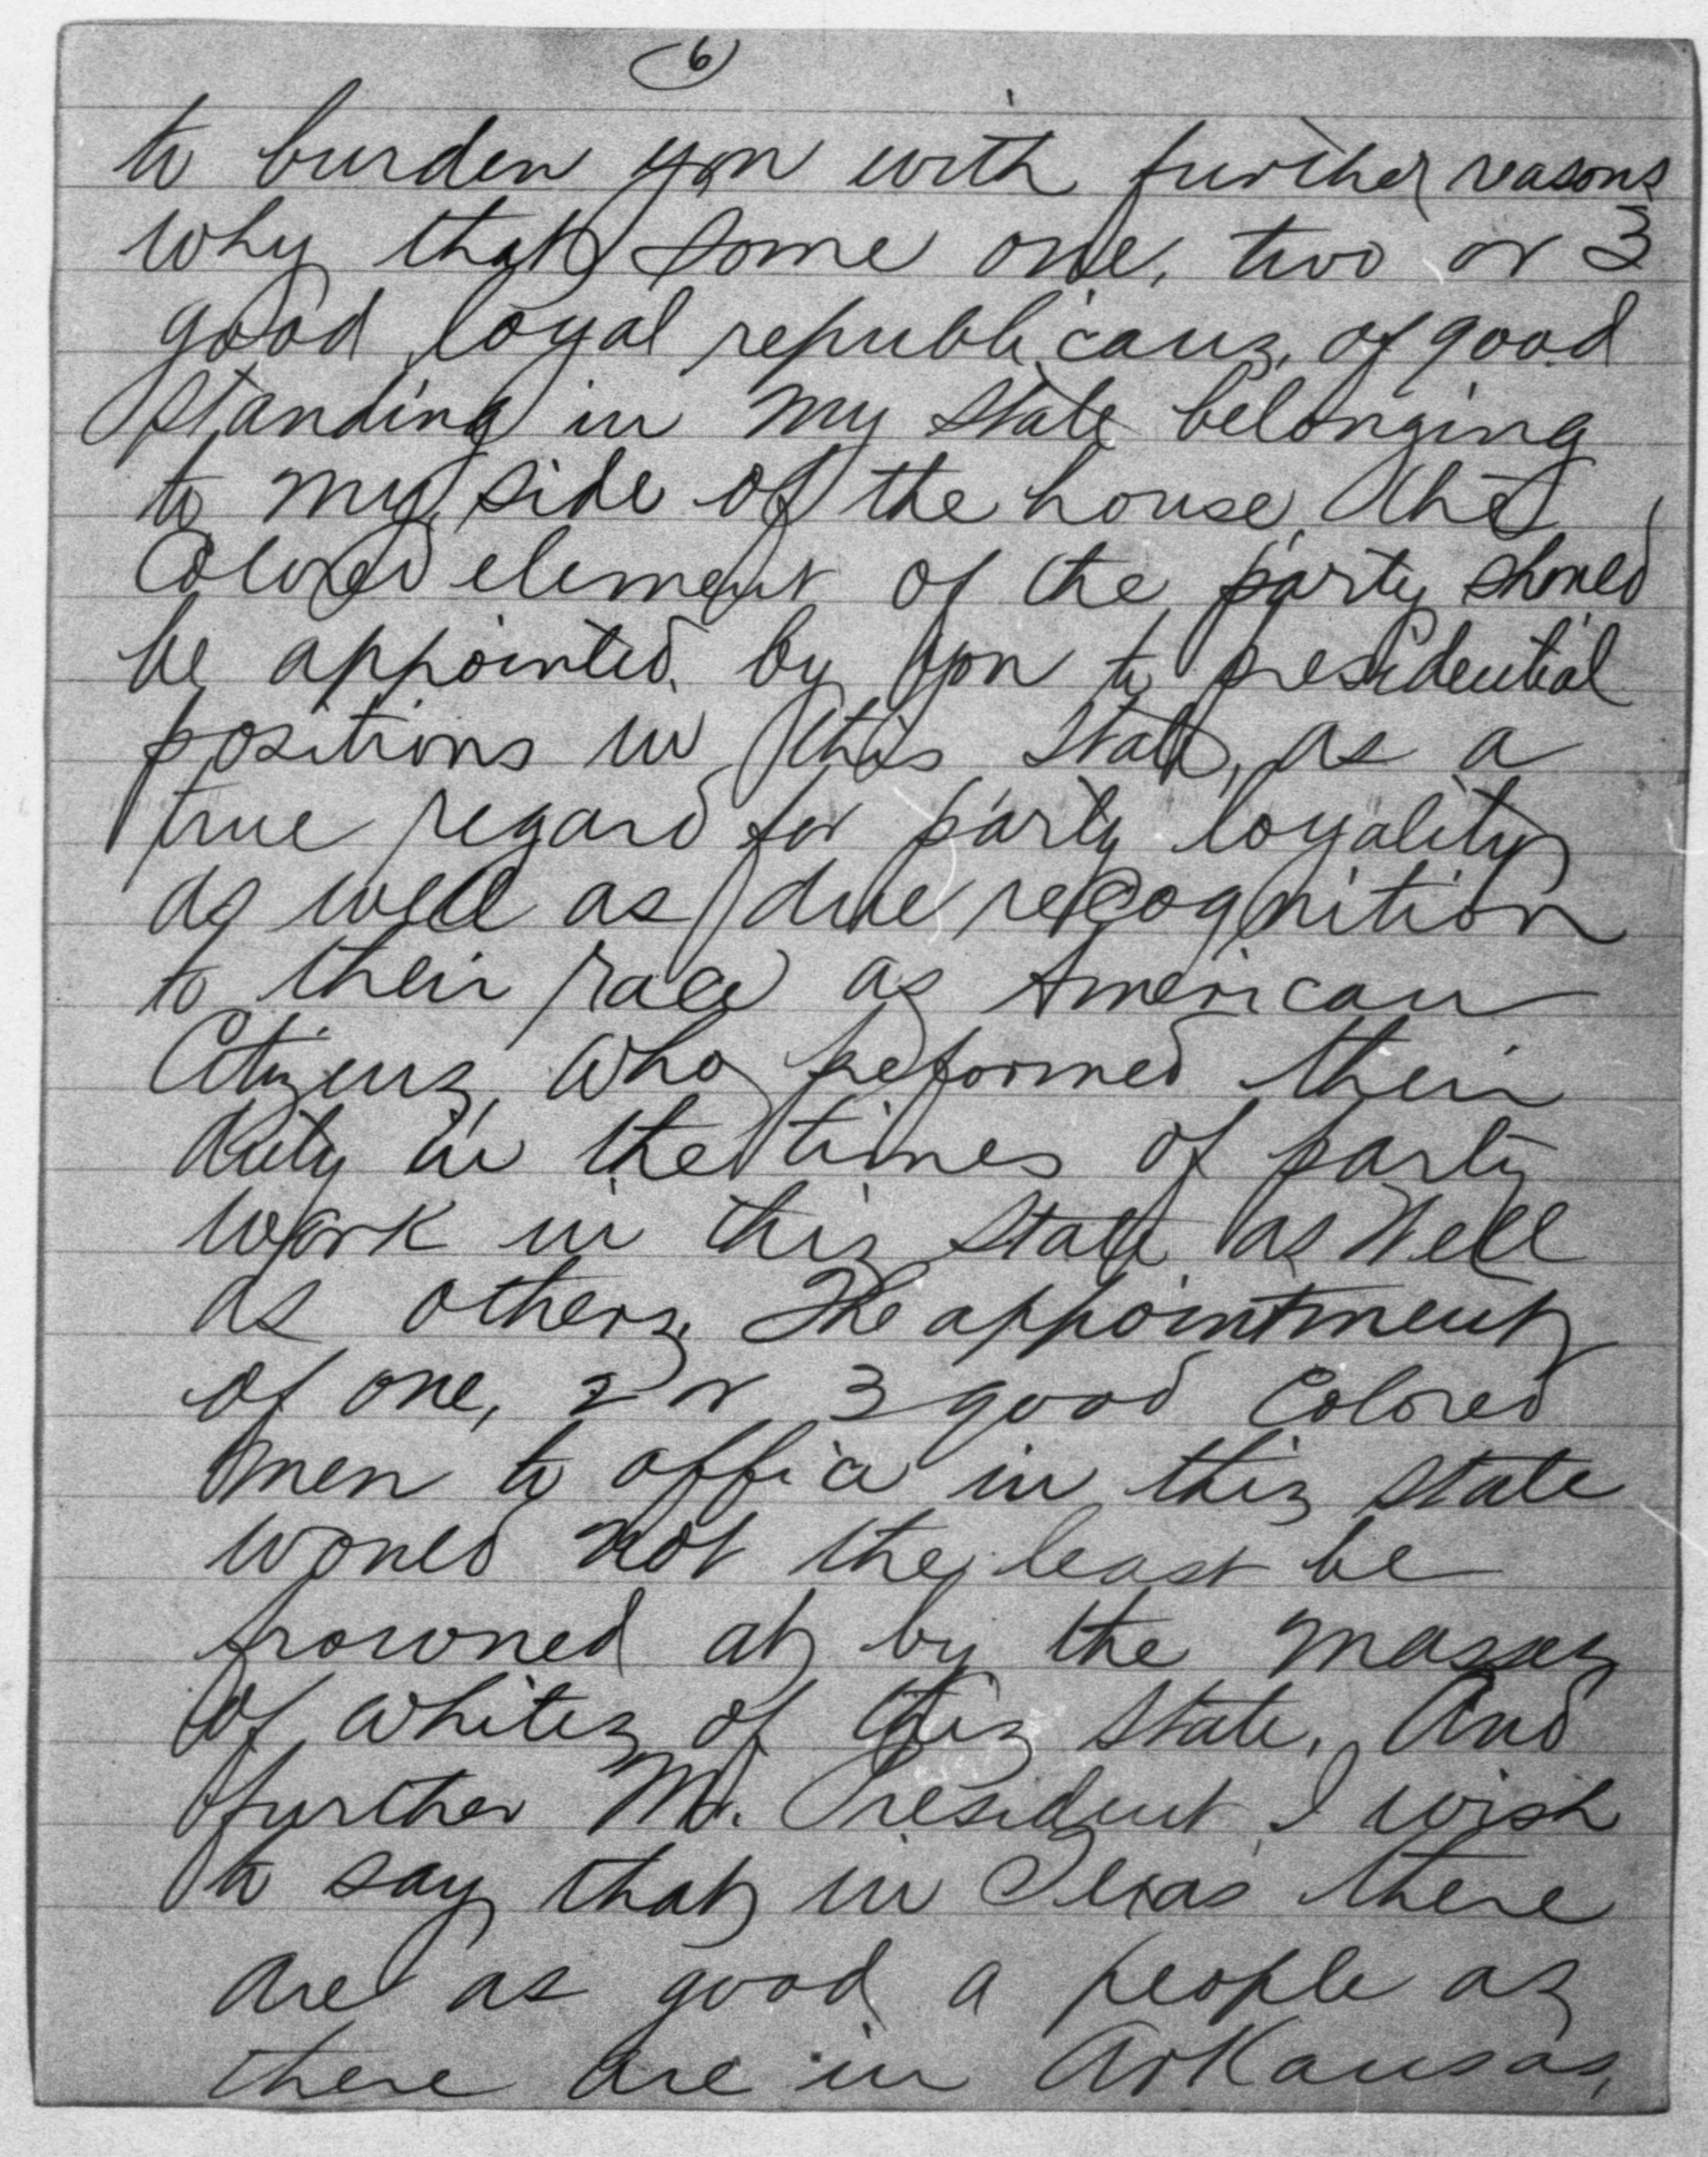 6
to burden you with further reasons
why that some one, two or 3
good loyal republicans, of good
standing in my state belonging
to my side of the house, the
Colored element of the party should
be appointed by you to presidential
positions in this state, as a
true regard for party loyality
as well as due recognition
to their race as American
Citizens, who peformed their
duty in the times of party
work in this state as well
as others. The appointment
of one, 2 or 3 good Colored
men to office in this state
would not the least be
frowned at by the masses
of whites of this state. And
further Mr. President I wish
to say that in Texas there
are as good a people as
there are in Arkansas,